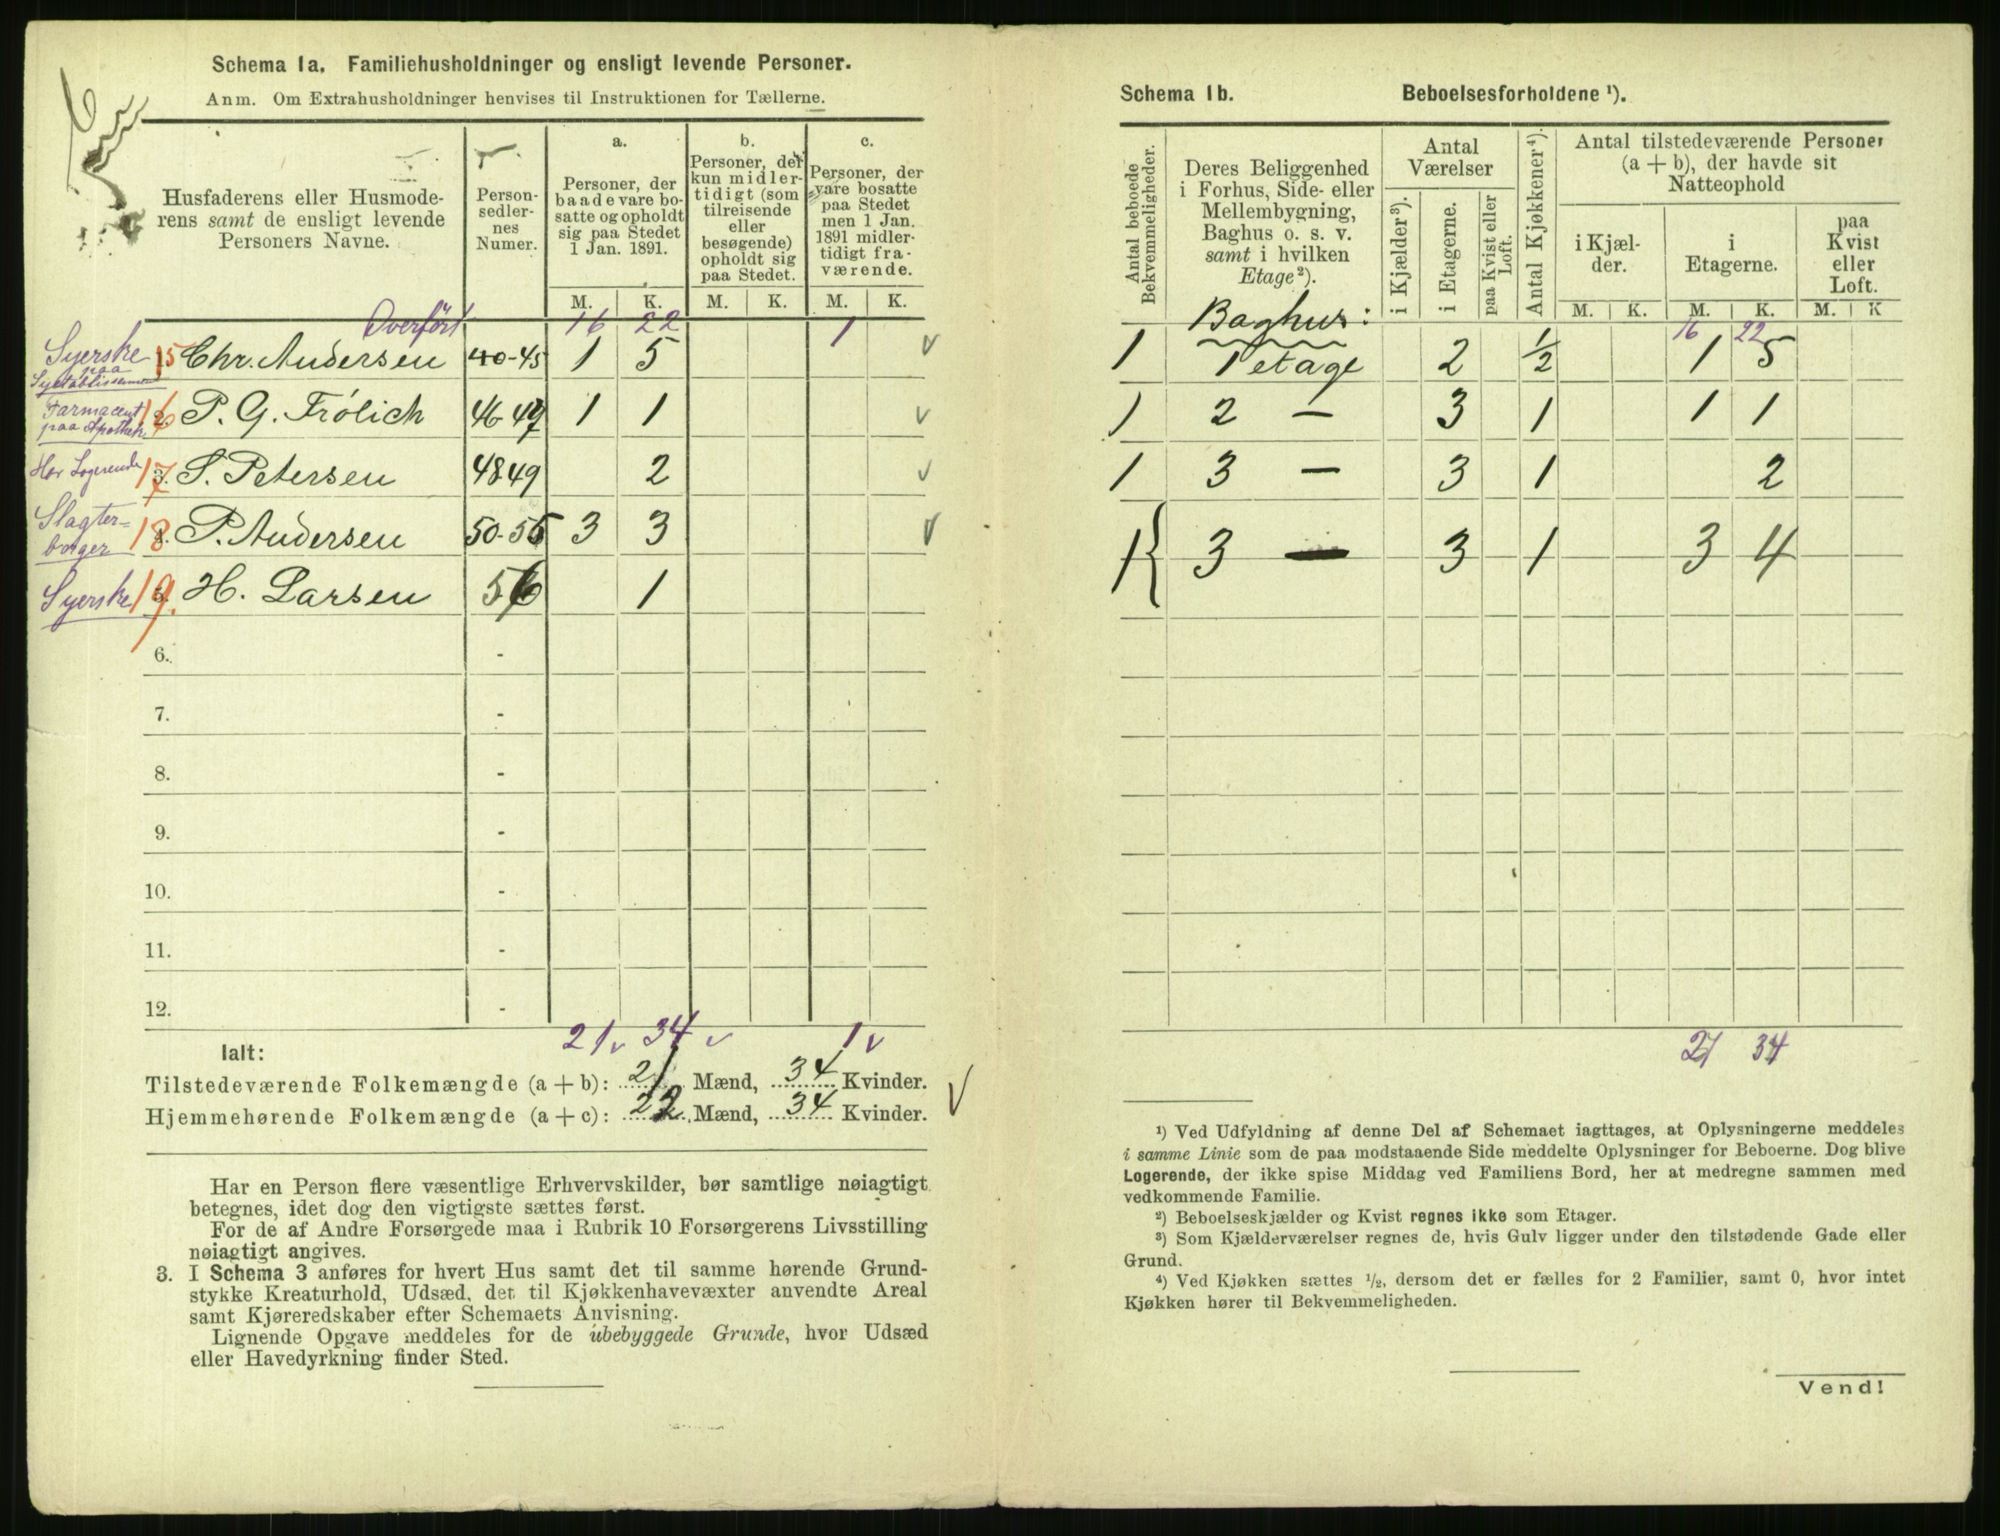 Schema 1a. Familiehusholdninger og ensligt levende Personer.
Anm. Om Extrahusholdninger henvises til Instruktionen for Tællerne.
Husfaderens eller Husmode-
rens samt de ensligt levende
Personers Navne.
Person-
sedler-
nes
Numer.
a.
Personer, der
baade vare bo-
satte og opholdt
sig paa Stedet
1 Jan. 1891.
b.
Personer, der
kun midler-
tidigt (som
tilreisende
eller
besøgende)
opholdt sig
paa Stedet.
c.
Personer, der
vare bosatte
paa Stedet
men 1 Jan.
1891 midler-
tidigt fra-
værende.
M. K. M. K. M. K.
Overført 16 22 1
Syerske
paa
Syetablissement
15 Chr. Andersen 40-45 1 5
Farmaceut
paa Apothek
16 P. G. Frølich 46 47 1 1
Har Logerende 17 3. S. Petersen 48 49 2
Slagter-
borger
18 P. Andersen 50-55 3 3
Syerske 19. H. Larsen 56 1
6. -
7. -
8. -
9. -
10. -
11. -
12. -
21 34 1
Ialt:
Tilstedeværende Folkemængde (a + b): 21 Mænd, 34 Kvinder.
Hjemmehørende Folkemængde (a + c): 22 Mænd, 34 Kvinder.
Har en Person flere væsentlige Erhvervskilder, bør samtlige nøiagtigt
betegnes, idet dog den vigtigste sættes først.
For de af Andre Forsørgede maa i Rubrik 10 Forsørgerens Livsstilling
nøiagtigt angives.
3. I Schema 3 anføres for hvert Hus samt det til samme hørende Grund-
stykke Kreaturhold, Udsæd, det til Kjøkkenhavevæxter anvendte Areal
samt Kjøreredskaber efter Schemaets Anvisning.
Lignende Opgave meddeles for de ubebyggede Grunde, hvor Udsæd
eller Havedyrkning finder Sted.
Schema 1b. Beboelsesforholdene ¹).
Antal beboede
Bekvemmeligheder.
Deres Beliggenhed
i Forhus, Side- eller
Mellembygning,
Baghus o. s. v.
samt i hvilken
Etage²).
Antal
Værelser
i Kjælder³).
i Etagerne.
paa Kvist eller
Loft.
Antal Kjøkkener⁴).
Antal tilstedeværende Personer
(a + b), der havde sit
Natteophold
i Kjæl-
der.
i
Etagerne.
paa
Kvist
eller
Loft.
M. K. M. K. M. K
Baghus: 16 22
1 1 etage 2 ½ 1 5
1 2 — 3 1 1 1
1 3 — 3 1 2
1 { 3 — 3 1 3 4
21 34
¹) Ved Udfyldning af denne Del af Schemaet iagttages, at Oplysningerne meddeles
i samme Linie som de paa modstaaende Side meddelte Oplysninger for Beboerne. Dog blive
Logerende, der ikke spise Middag ved Familiens Bord, her at medregne sammen med
vedkommende Familie.
²) Beboelseskjælder og Kvist regnes ikke som Etager.
³) Som Kjælderværelser regnes de, hvis Gulv ligger under den tilstødende Gade eller
Grund.
⁴) Ved Kjøkken sættes ½, dersom det er fælles for 2 Familier, samt 0, hvor intet
Kjøkken hører til Bekvemmeligheden.
Vend!